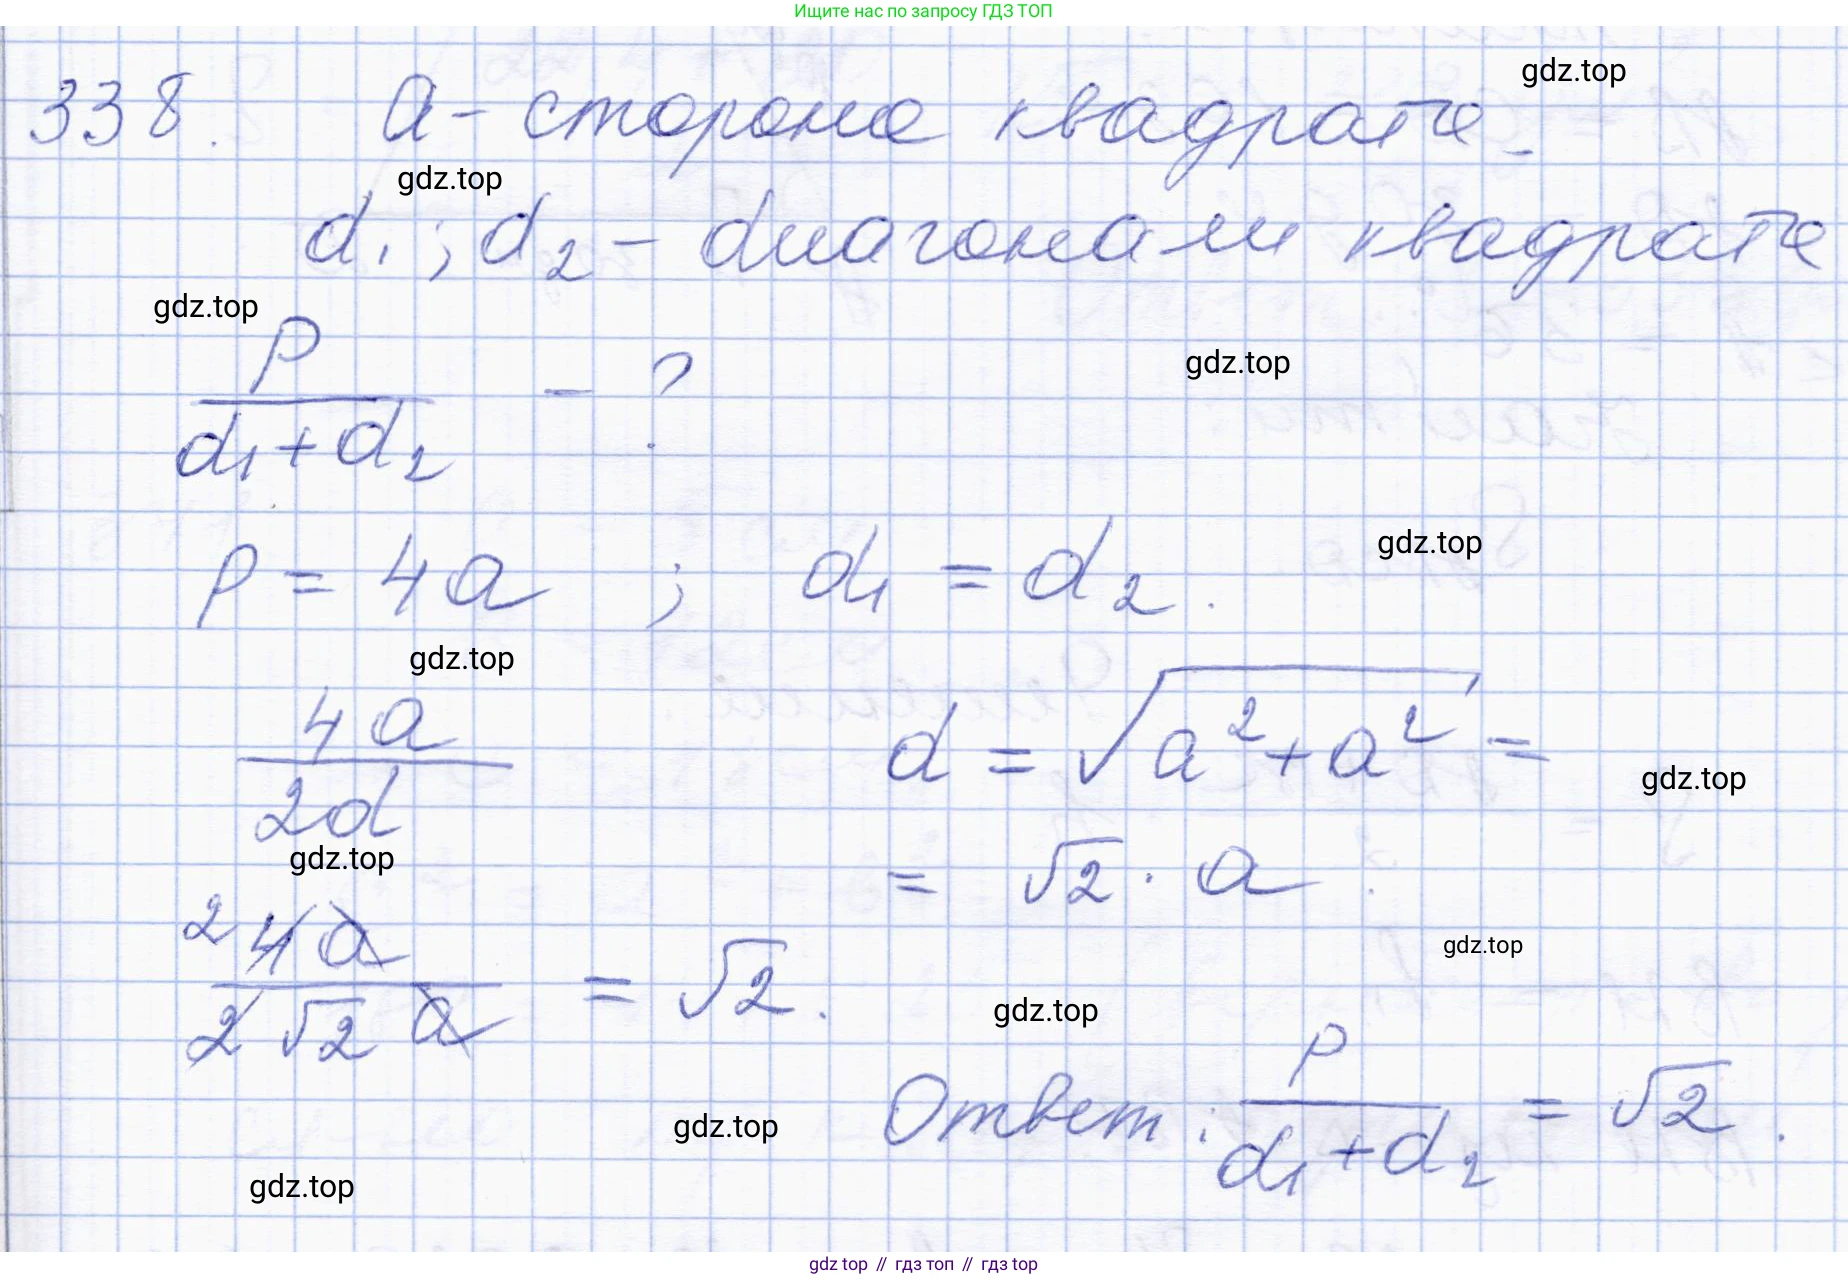 Ищите нас по запросу ГДЗ ТОП
gdz.top
338. a - сторона квадрата.
gdz.top
d₁ ; d₂ - диагонали квадрата
gdz.top
P / (d₁ + d₂) - ?
gdz.top
P = 4a ; d₁ = d₂.
gdz.top
gdz.top
4a / 2d
d = √(a² + a²) =
gdz.top
gdz.top
= √2 · a.
2 4a / (2√2 a) = √2.
gdz.top
gdz.top
Ответ: P / (d₁ + d₂) = √2.
gdz.top
gdz.top
gdz top // гдз топ // гдз top